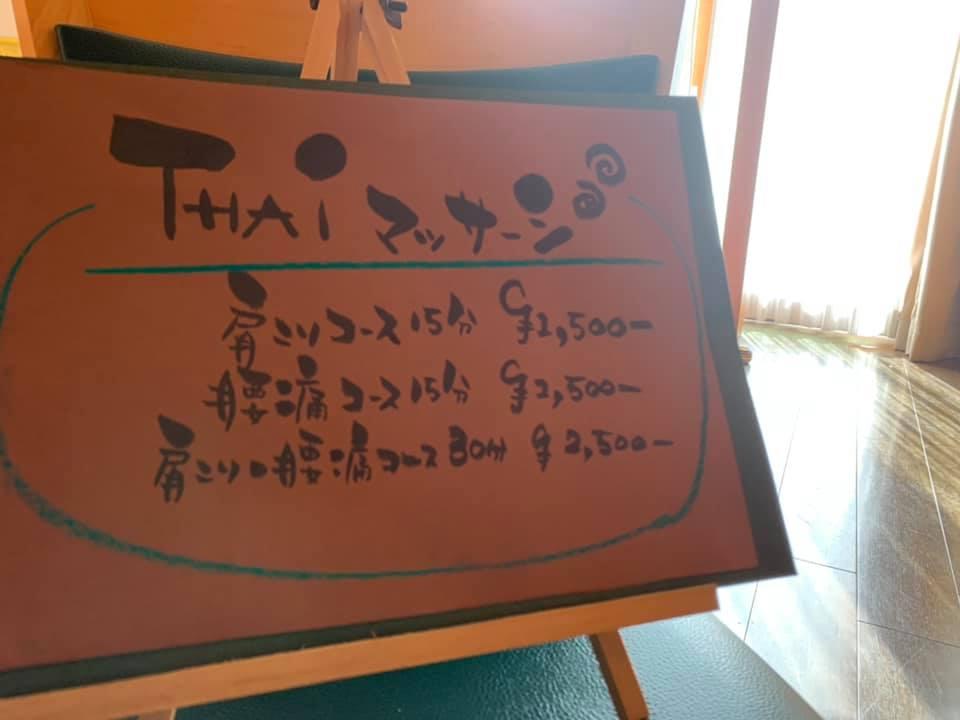 THAi マッサージ
肩こりコース15分 ¥1,500ー
腰痛コース15分 ¥1,500ー
肩こり・腰痛コース30分 ¥2,500ー